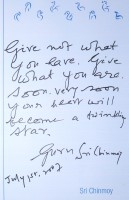 Give not what
You have. Give
what you are.
Soon, very soon
Your heart will
become a twinkling
star.
Guru Sri Chinmoy
July 1st,
Sri Chinmoy